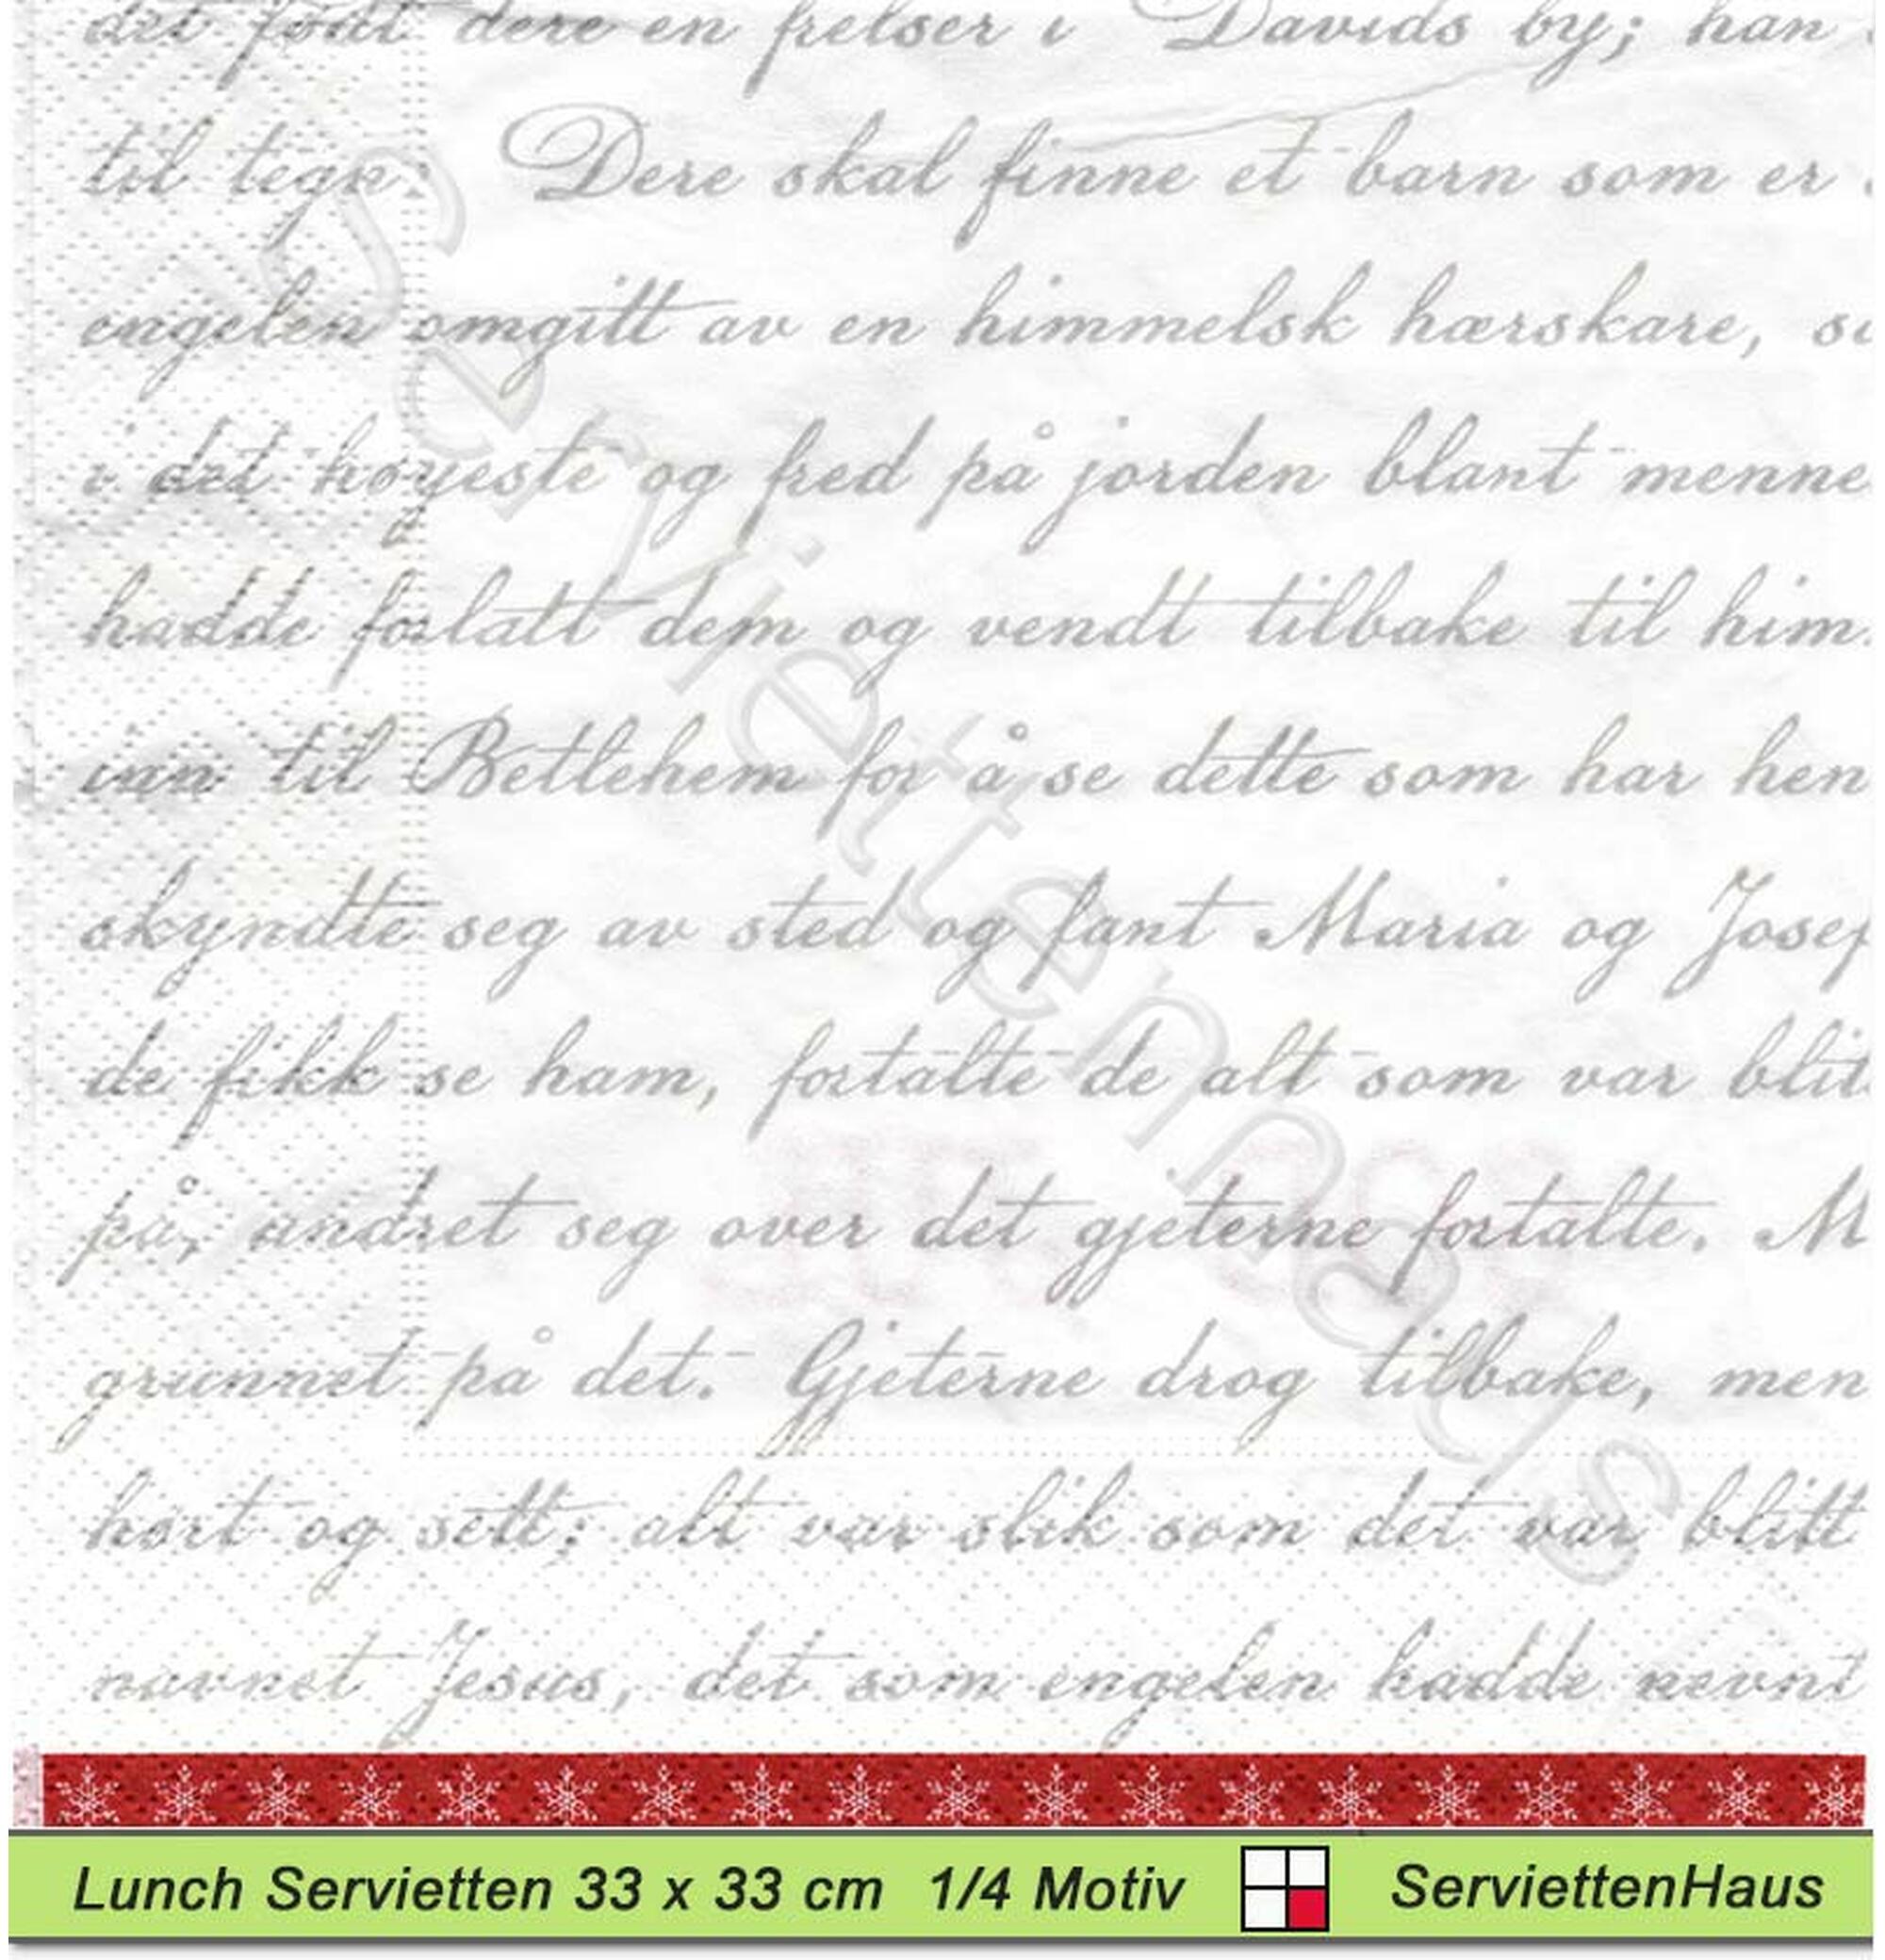 det født dere en frelser i Davids by; han
til tegn: Dere skal finne et barn som er
engelen omgitt av en himmelsk hærskare, s
i det høyeste og fred på jorden blant menne
hadde forlatt dem og vendt tilbake til him
inn til Betlehem for å se dette som har hen
skyndte seg av sted og fant Maria og Josef
de fikk se ham, fortalte de alt som var blit
på, undret seg over det gjeterne fortalte. M
grunnet på det. Gjeterne drog tilbake, men
hørt og sett; alt var slik som det var blitt
navnet Jesus, det som engelen hadde nevnt
Serviettenhaus
Lunch Servietten 33 x 33 cm 1/4 Motiv ServiettenHaus